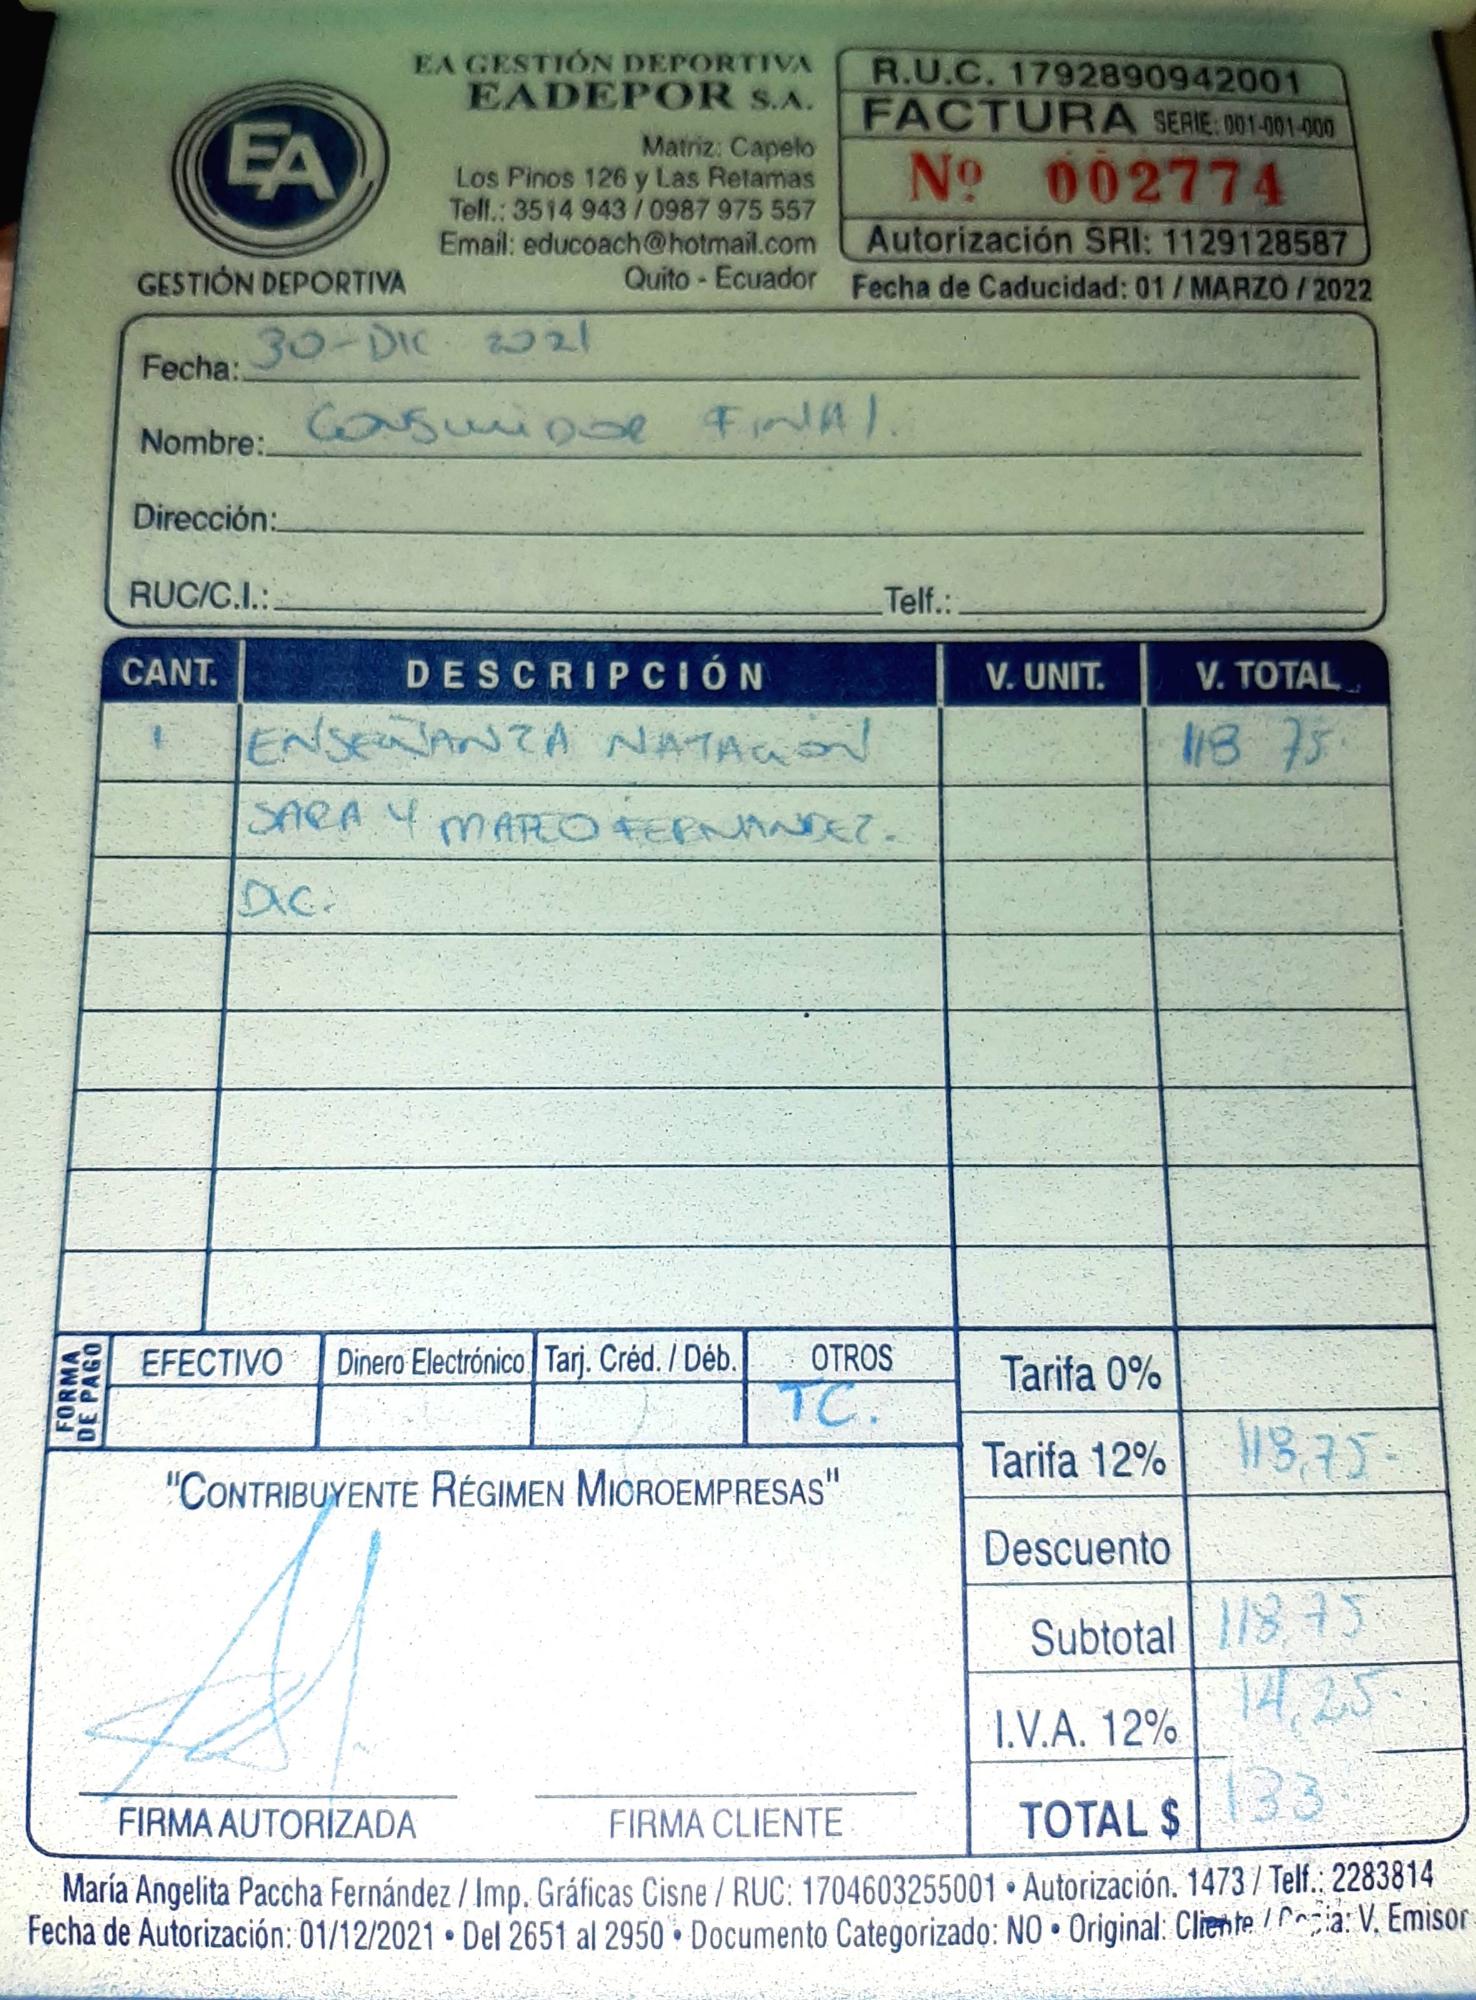 EA GESTIÓN DEPORTIVA
EADEPOR S.A.
EA
GESTIÓN DEPORTIVA
Matriz: Capelo
Los Pinos 126 y Las Retamas
Telf.: 3514 943 / 0987 975 557
Email: educoach@hotmail.com
Quito - Ecuador
R.U.C. 1792890942001
FACTURA SERIE: 001-001-000
Nº 002774
Autorización SRI: 1129128587
Fecha de Caducidad: 01 / MARZO / 2022
Fecha: 30-DIC 2021
Nombre: Consumidor Final.
Dirección:
RUC/C.I.: Telf.:
CANT. DESCRIPCIÓN V. UNIT. V. TOTAL
1 ENSEÑANZA NATACION 118 75.
SARA Y MATEO FERNANDEZ.
DIC.
FORMA DE PAGO
EFECTIVO Dinero Electrónico Tarj. Créd. / Déb. OTROS
TC.
Tarifa 0%
Tarifa 12% 118,75.
Descuento
Subtotal 118,75
I.V.A. 12% 14,25.
TOTAL $ 133
"CONTRIBUYENTE RÉGIMEN MICROEMPRESAS"
FIRMA AUTORIZADA FIRMA CLIENTE
María Angelita Paccha Fernández / Imp. Gráficas Cisne / RUC: 1704603255001 • Autorización. 1473 / Telf.: 2283814
Fecha de Autorización: 01/12/2021 • Del 2651 al 2950 • Documento Categorizado: NO • Original: Cliente / Copia: V. Emisor